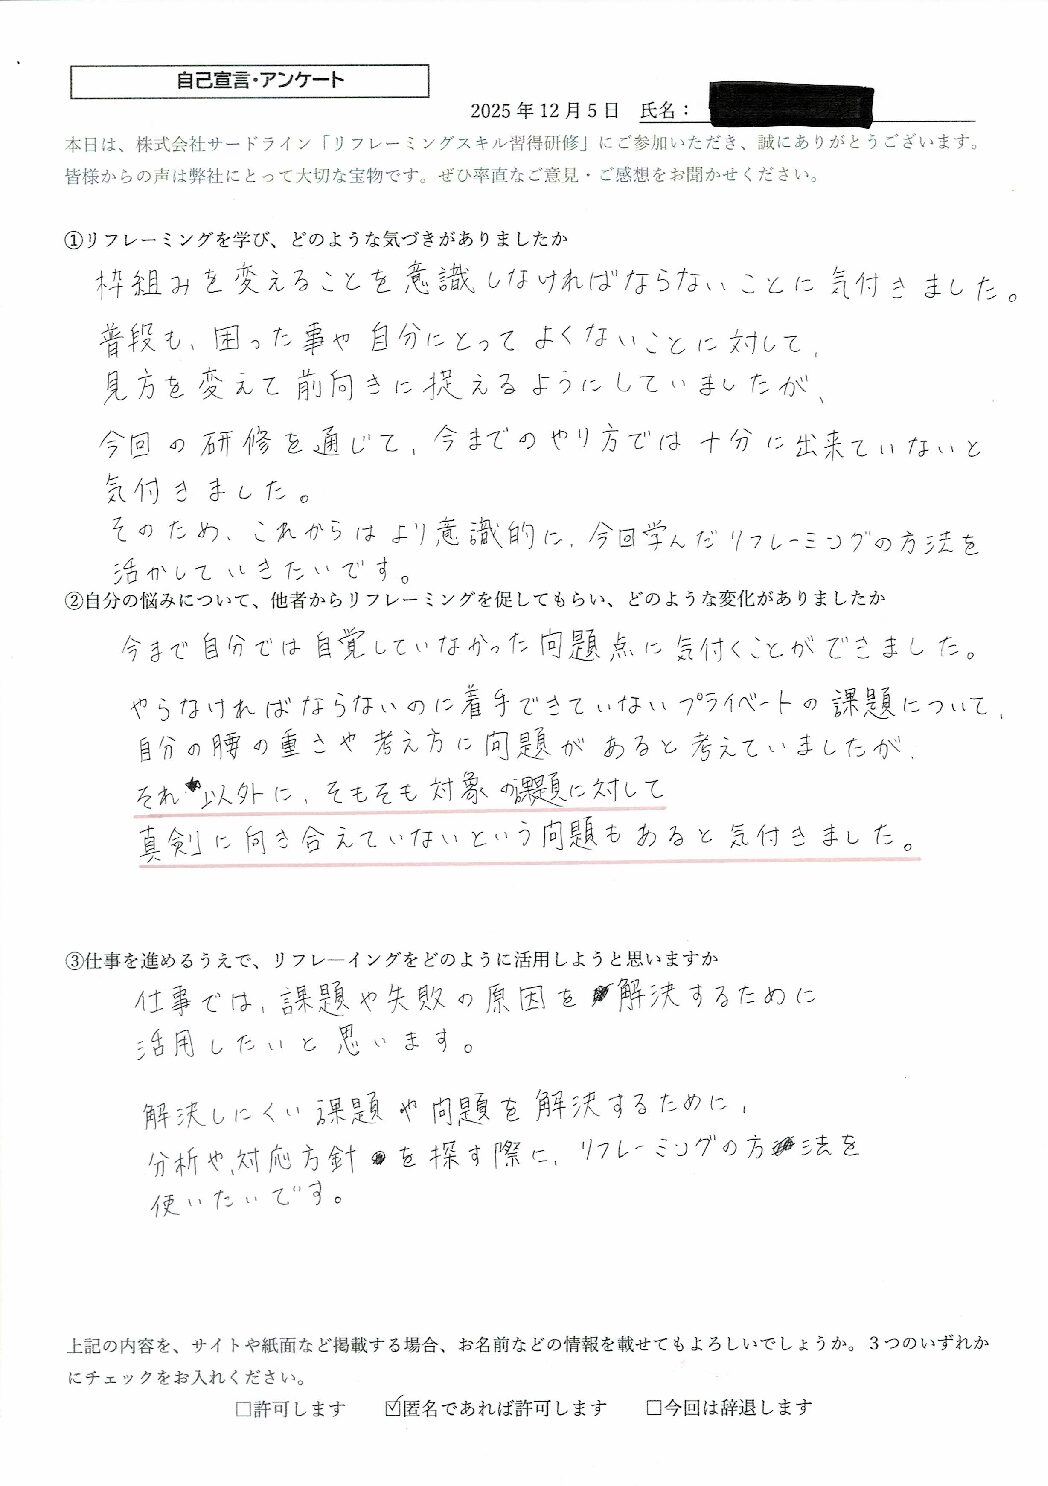 自己宣言・アンケート
2025年12月5日　氏名：
本日は、株式会社サードライン「リフレーミングスキル習得研修」にご参加いただき、誠にありがとうございます。
皆様からの声は弊社にとって大切な宝物です。ぜひ率直なご意見・ご感想をお聞かせください。
①リフレーミングを学び、どのような気づきがありましたか
枠組みを変えることを意識しなければならないことに気付きました。
普段も、困った事や自分にとってよくないことに対して、
見方を変えて前向きに捉えるようにしていましたが、
今回の研修を通じて、今までのやり方では十分に出来ていないと
気付きました。
そのため、これからはより意識的に、今回学んだリフレーミングの方法を
活かしていきたいです。
②自分の悩みについて、他者からリフレーミングを促してもらい、どのような変化がありましたか
今まで自分では自覚していなかった問題点に気付くことができました。
やらなければならないのに着手できていないプライベートの課題について、
自分の腰の重さや考え方に問題があると考えていましたが、
それ以外に、そもそも対象の課題に対して
真剣に向き合えていないという問題もあると気付きました。
③仕事を進めるうえで、リフレ―イングをどのように活用しようと思いますか
仕事では、課題や失敗の原因を解決するために
活用したいと思います。
解決しにくい課題や問題を解決するために、
分析や、対応方針を探す際に、リフレーミングの方法を
使いたいです。
上記の内容を、サイトや紙面など掲載する場合、お名前などの情報を載せてもよろしいでしょうか。３つのいずれか
にチェックをお入れください。
□許可します　☑匿名であれば許可します　□今回は辞退します